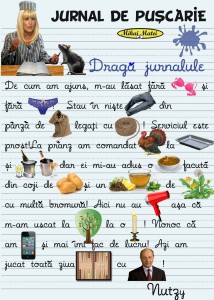 JURNAL DE PUȘCĂRIE
Mihai Matei
Dragă jurnalule
De cum am ajuns, m-au lăsat fără și
fără . Stau în niște din
pânză de legați cu ! Serviciul este
prost!La prânz am comandat la
și dar ei mi-au adus o făcută
din coji de și un de
cu multă bromură! Aici nu au așa că
m-am uscat la la o ! Noroc că
am și mai îmi fac de lucru! Azi am
jucat toată ziua cu !
Nutzy